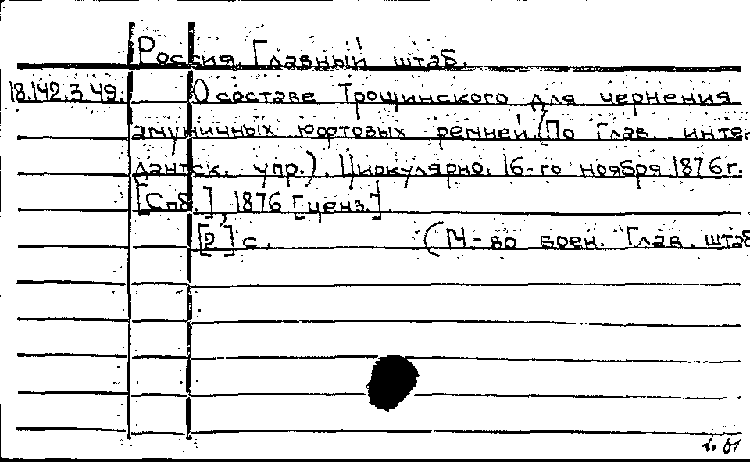 Россия. Главный штаб.
18.142.3.49. О составе Трощинского для чернения
амуничных юфтовых ремней. (По Глав. интен
дантск. упр.). Циркулярно. 16-го ноября 1876 г.
[Спб.], 1876 [ценз.]
[2] с. (М-во воен. Глав. штаб